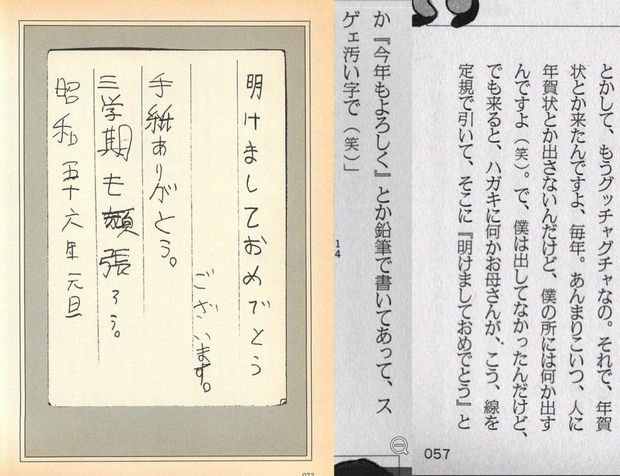 とかして、もうグッチャグチャなの。それで、年賀
状とか来たんですよ、毎年。あんまりこいつ、人に
年賀状とか出さないんだけど、僕の所には何か出す
んですよ（笑）。で、僕は出してなかったんだけど、
でも来ると、ハガキに何かお母さんが、こう、線を
定規で引いて、そこに『明けましておめでとう』と
057
か『今年もよろしく』とか鉛筆で書いてあって、ス
ゲェ汚い字で（笑）」
明けましておめでとう
ございます。
手紙ありがとう。
三学期も頑張ろう。
昭和五十六年元旦